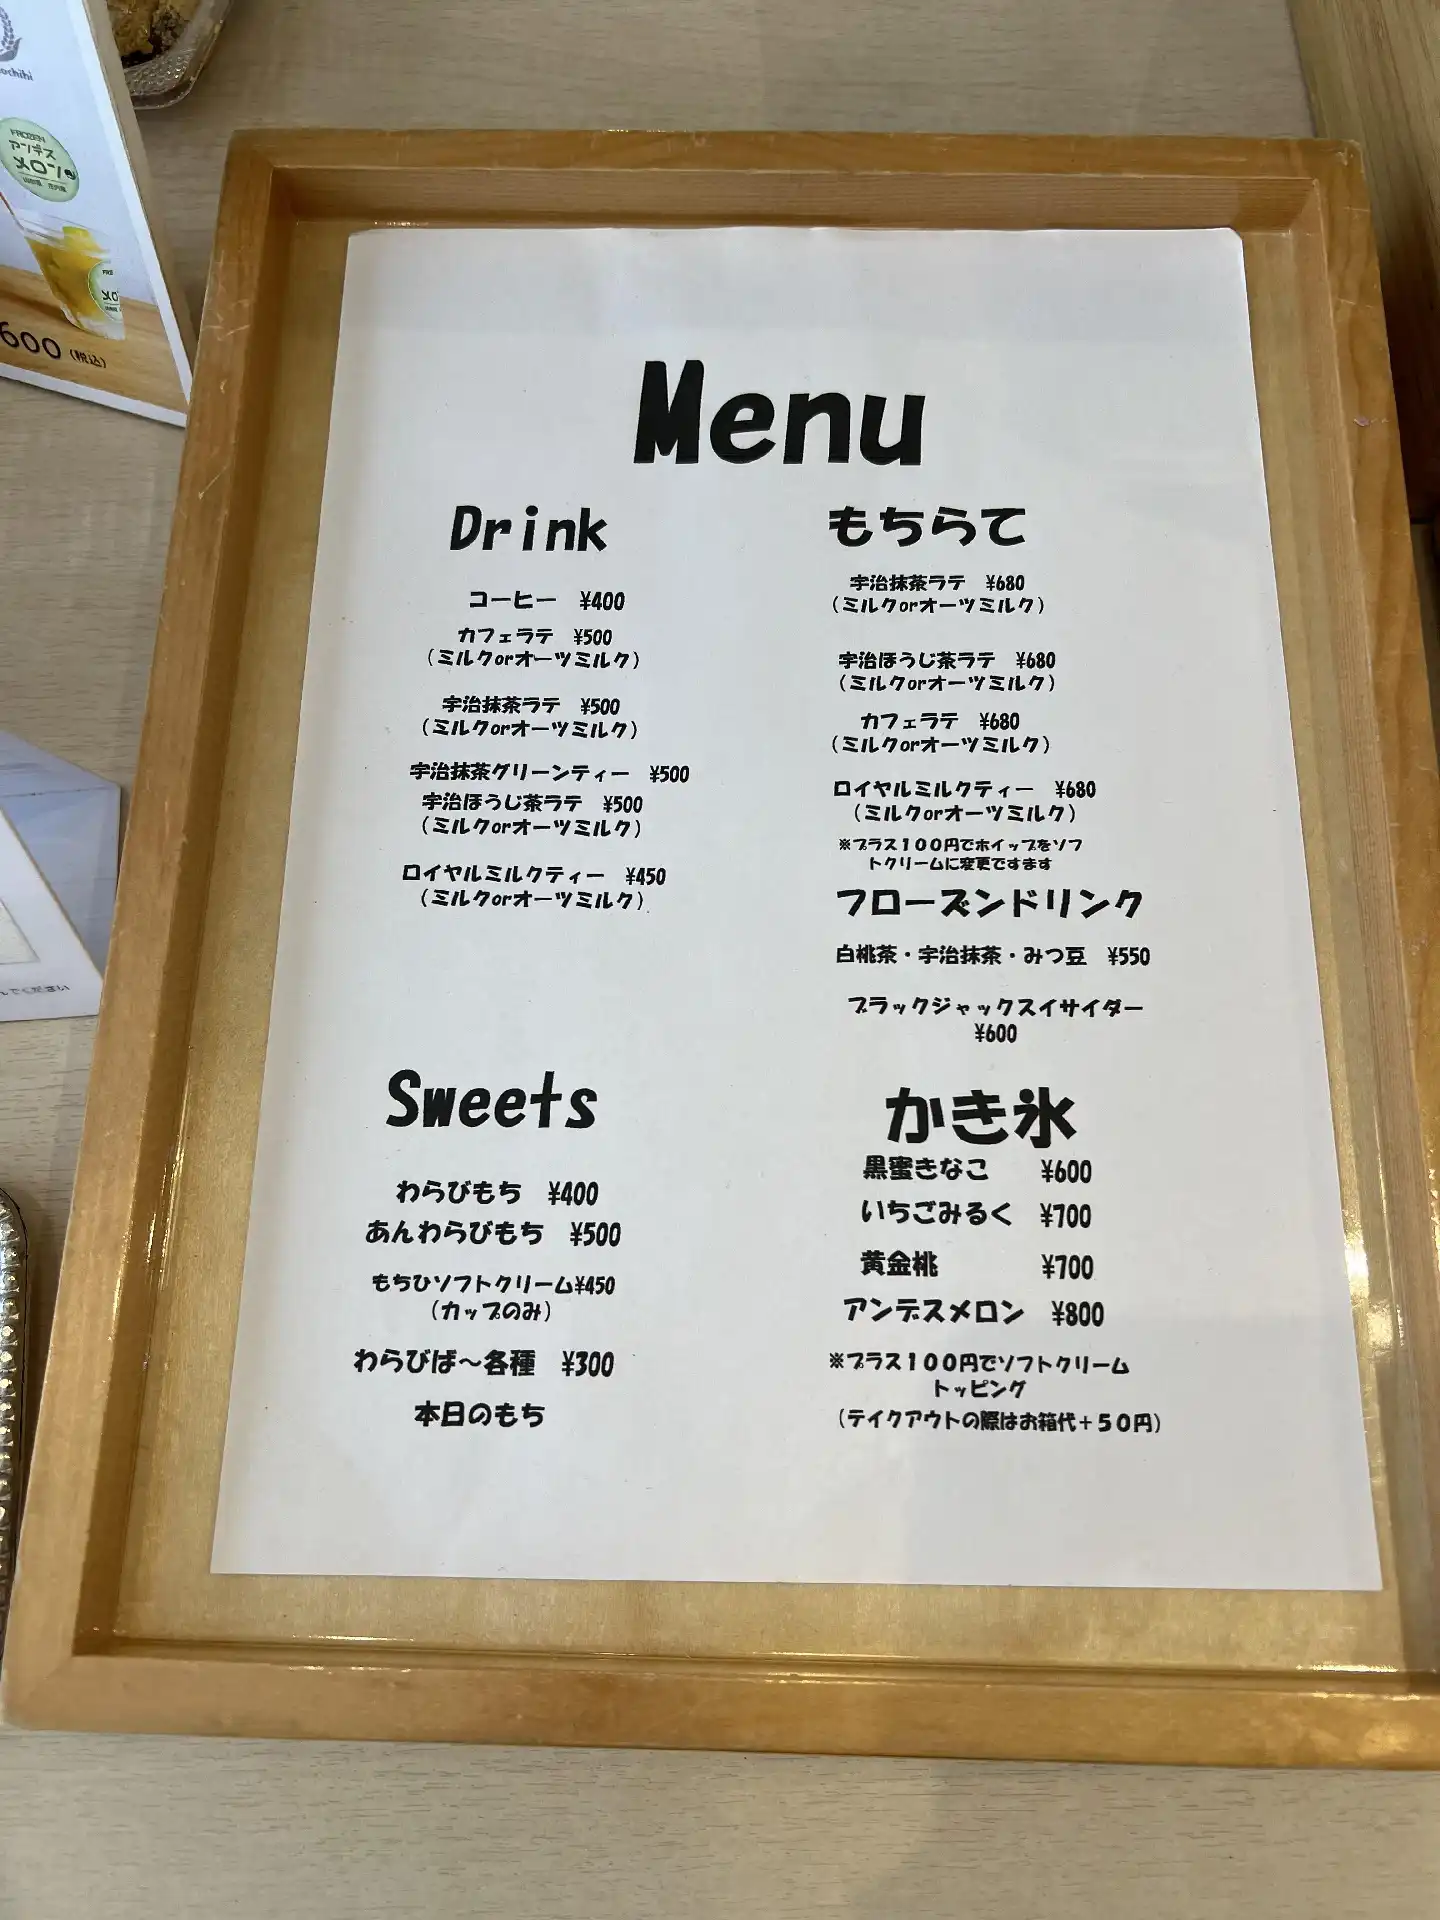 ochihi
FROZEN
アンデス
メロン
600(税込)
Menu
Drink
コーヒー ¥400
カフェラテ ¥500
(ミルクorオーツミルク)
宇治抹茶ラテ ¥500
(ミルクorオーツミルク)
宇治抹茶グリーンティー ¥500
宇治ほうじ茶ラテ ¥500
(ミルクorオーツミルク)
ロイヤルミルクティー ¥450
(ミルクorオーツミルク)
Sweets
わらびもち ¥400
あんわらびもち ¥500
もちひソフトクリーム¥450
(カップのみ)
わらびば～各種 ¥300
本日のもち
もちらて
宇治抹茶ラテ ¥680
(ミルクorオーツミルク)
宇治ほうじ茶ラテ ¥680
(ミルクorオーツミルク)
カフェラテ ¥680
(ミルクorオーツミルク)
ロイヤルミルクティー ¥680
(ミルクorオーツミルク)
※プラス１００円でホイップをソフ
トクリームに変更ですます
フローズンドリンク
白桃茶・宇治抹茶・みつ豆 ¥550
ブラックジャックスイサイダー
¥600
かき氷
黒蜜きなこ ¥600
いちごみるく ¥700
黄金桃 ¥700
アンデスメロン ¥800
※プラス１００円でソフトクリーム
トッピング
(テイクアウトの際はお箱代＋５０円)